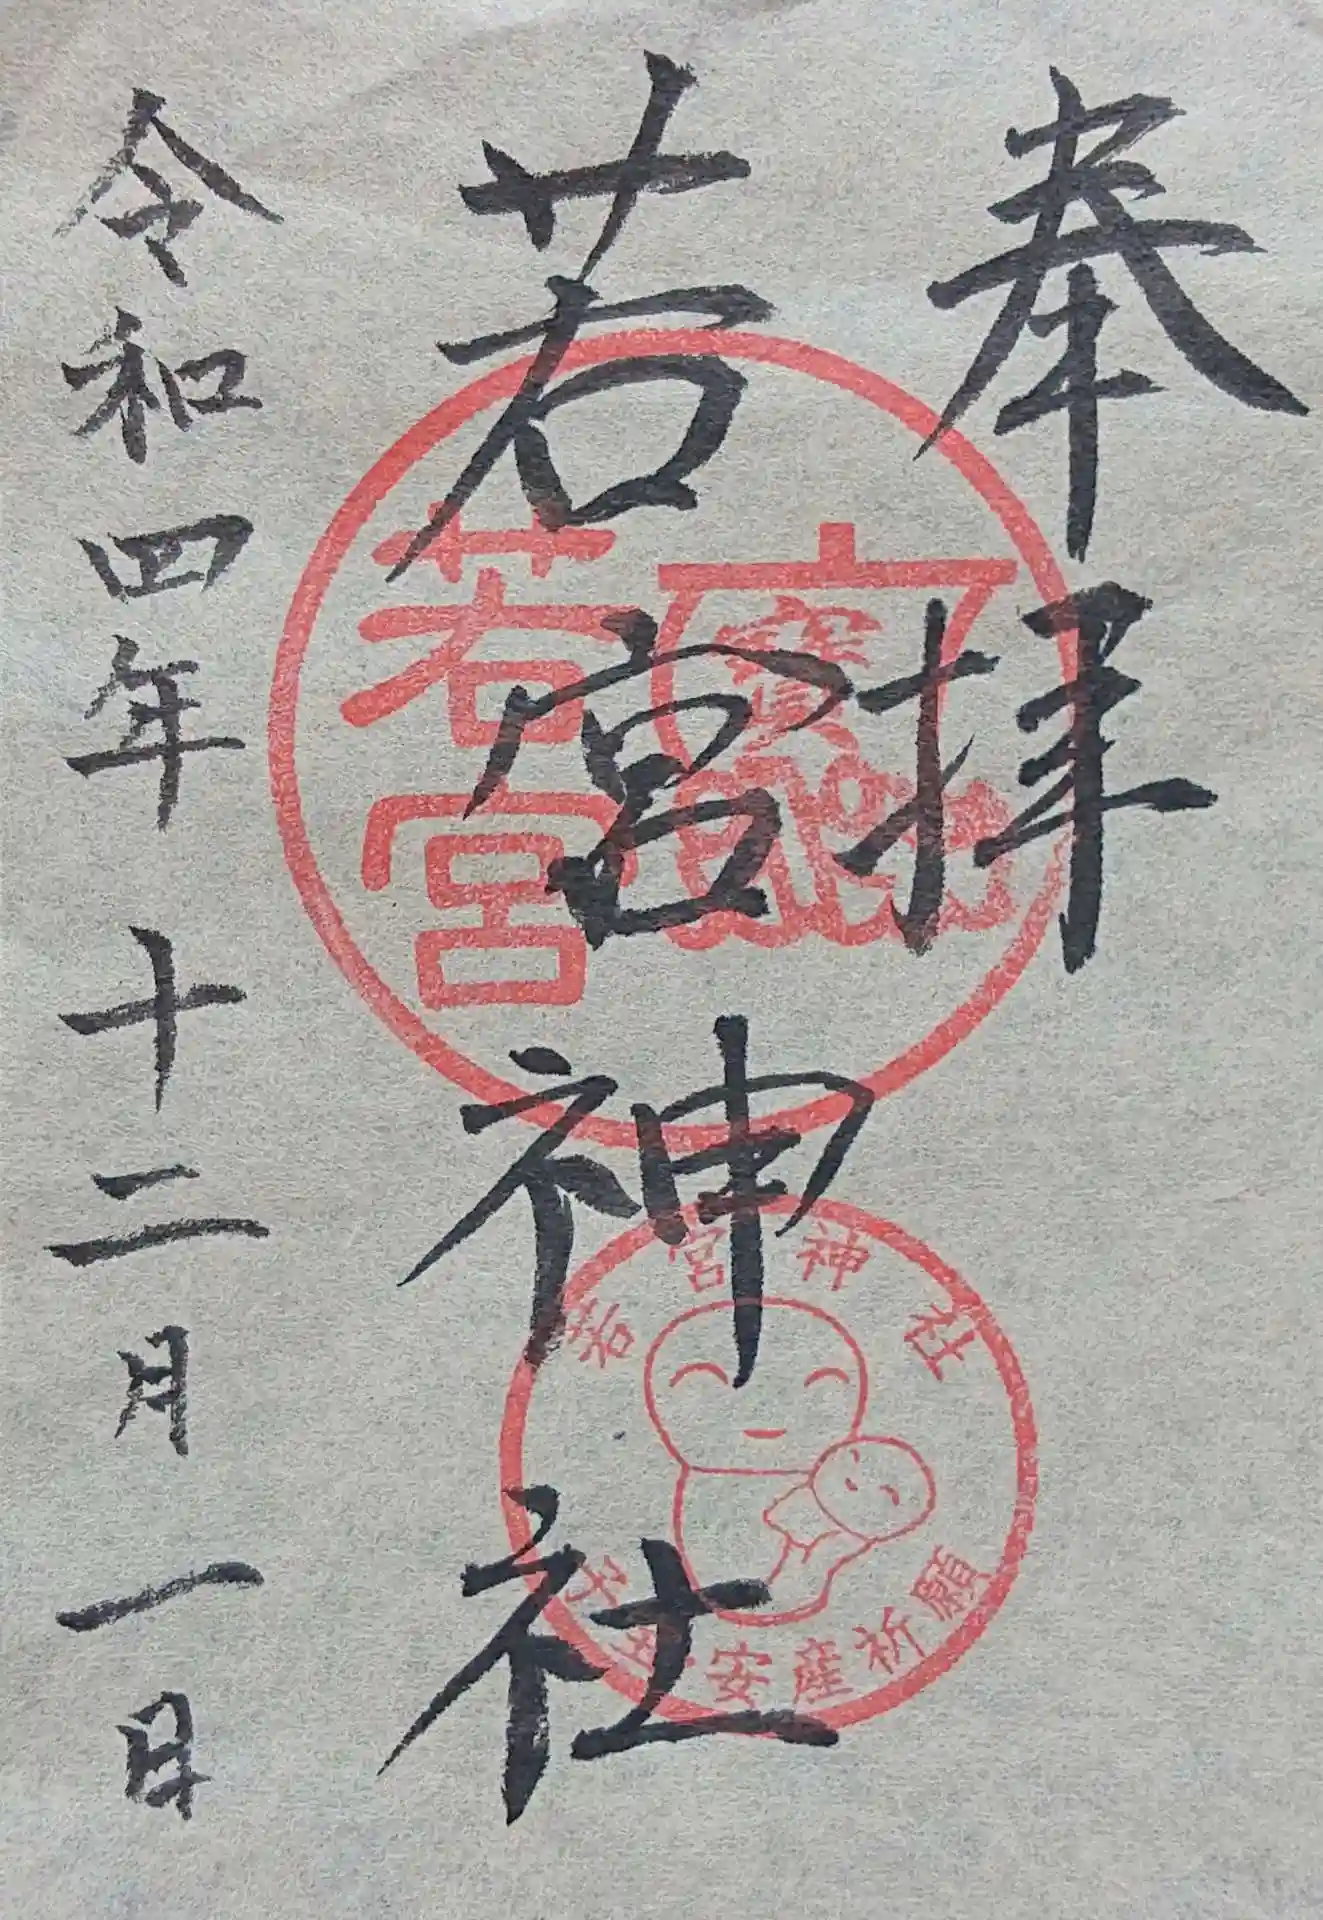 奉拝
若宮神社
令和四年十二月一日
若宮
寳
若宮神社
安産祈願